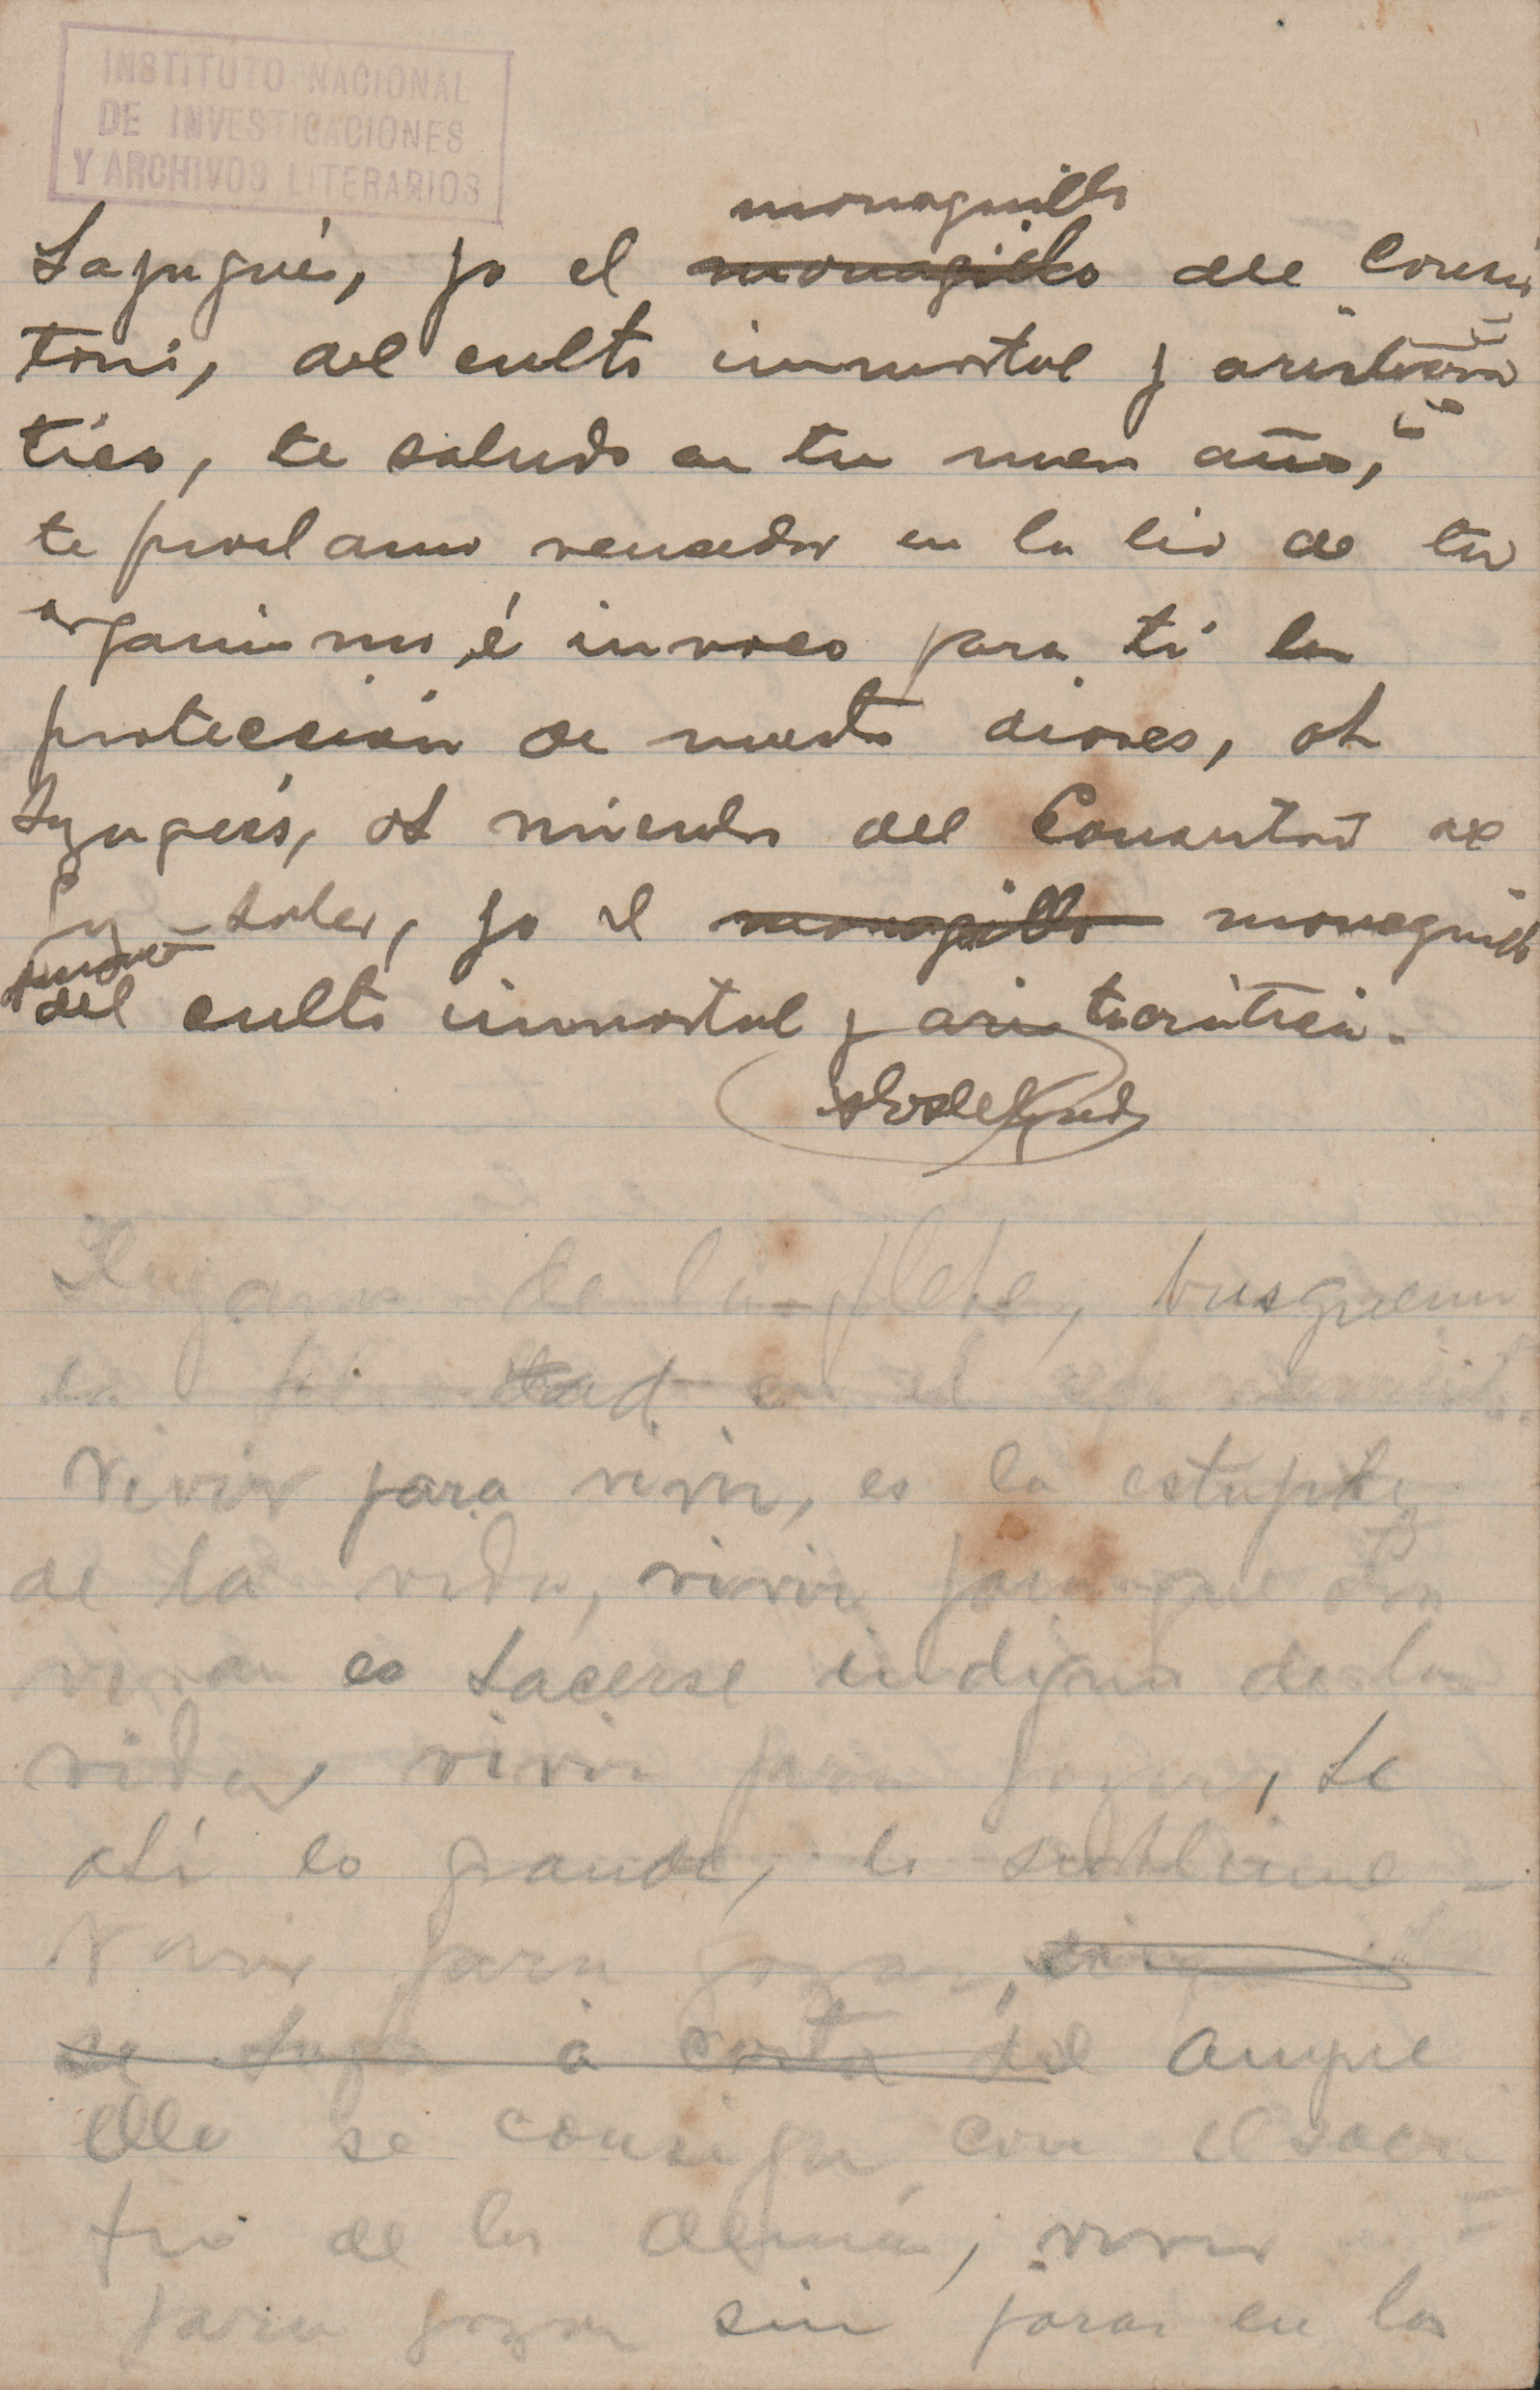 INSTITUTO NACIONAL
DE INVESTIGACIONES
Y ARCHIVOS LITERARIOS
monaguillo
yo el monagillo del Consis
torio, del culto inmortal y aristocra
tico, te saludo en tu nuevo año,
te proclamo vencedor en la lid de tu
organismo, é invoco para tí la
protección de nuestros dioses, oh
oh miembro del Consistorio de
yo el monagillo monaguillo
del culto inmortal y aristocrático.
Huyamos de la plebe, busquemos
la en el
Vivir para vivir, es la estupidez
de la vida, vivir para que otros
vivan es hacerse indigno de la
vida, vivir para gozar, he
ahí lo grande, lo sublime –
Vivir para gozar,
se haga á costa del aunque
ello se consiga con el sacri
ficio de los demás, vivir
para gozar sin parar en los